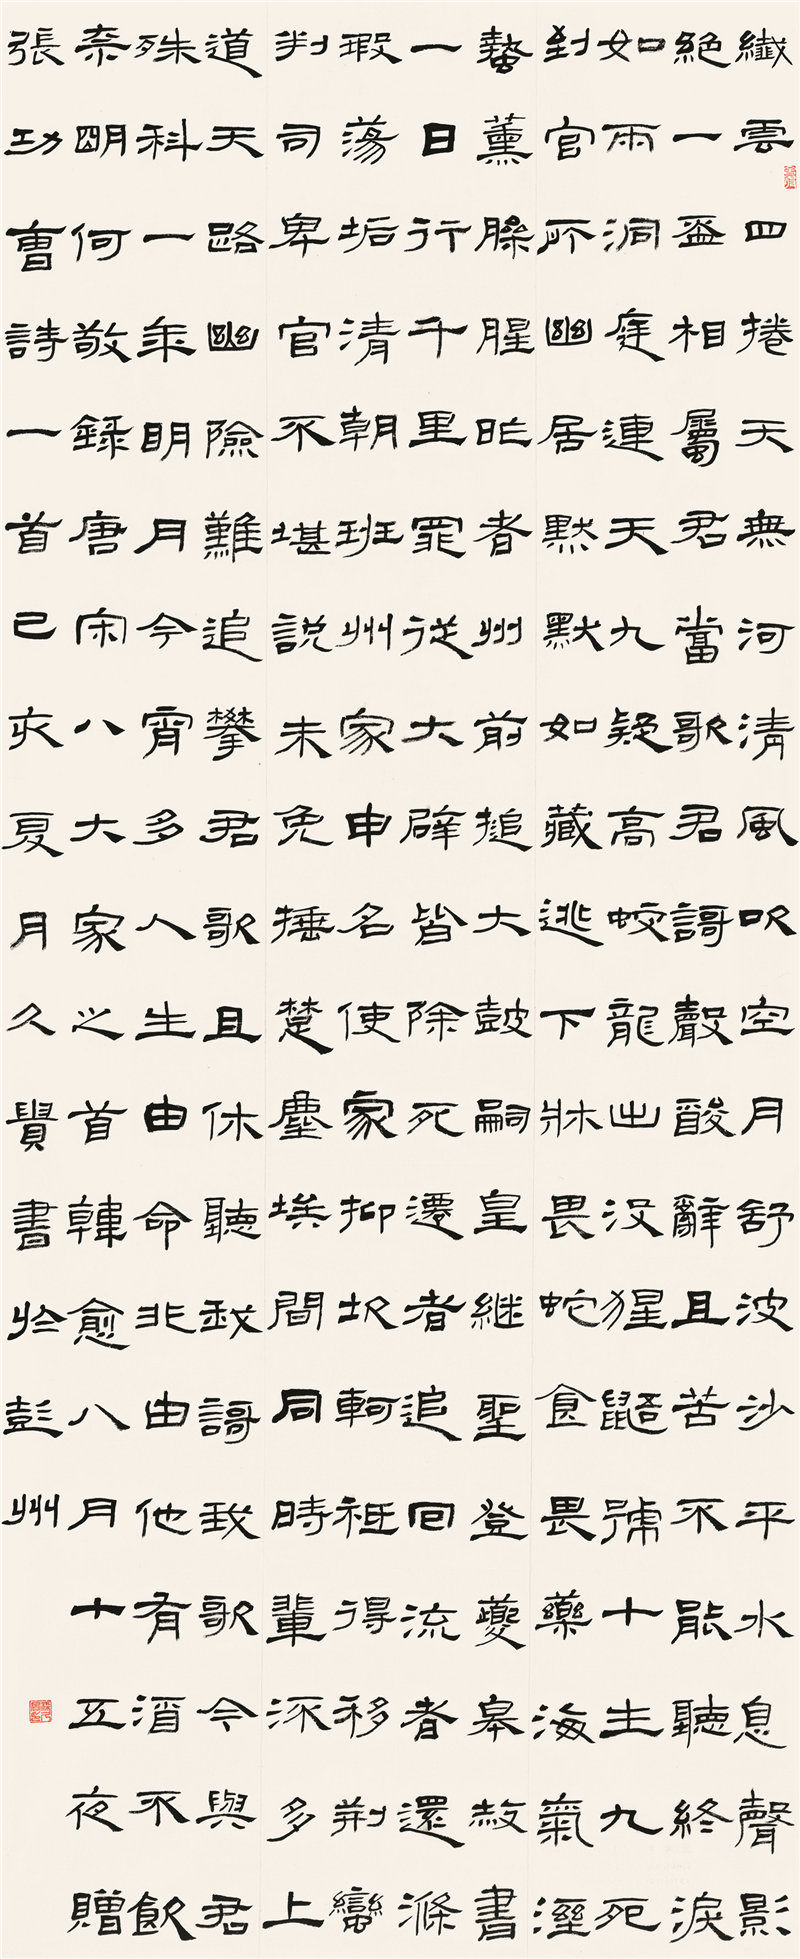 纖雲四捲天無河清風吹空月舒波沙平水息聲影
絕一盃相屬君當歌君謌聲酸辭且苦不能聽終淚
如雨洞庭連天九疑高蛟龍出沒猩鼯號十生九死
到官所幽居默默如藏逃下牀畏蛇食畏藥海氣溼
蟄薰臊腥昨者州前搥大鼓嗣皇繼聖登夔皋赦書
一日行千里罪從大辟皆除死遷者追回流者還滌
瑕蕩垢清朝班州家申名使家抑坎軻祗得移荆蠻
判司卑官不堪說未免捶楚塵埃間同時輩流多上
道天路幽險難追攀君歌且休聽我謌我歌今與君
殊科一年明月今宵多人生由命非由他有酒不飲
奈明何敬錄唐宋八大家之首韓愈八月十五夜贈
張功曹詩一首己亥夏月久貴書於彭州